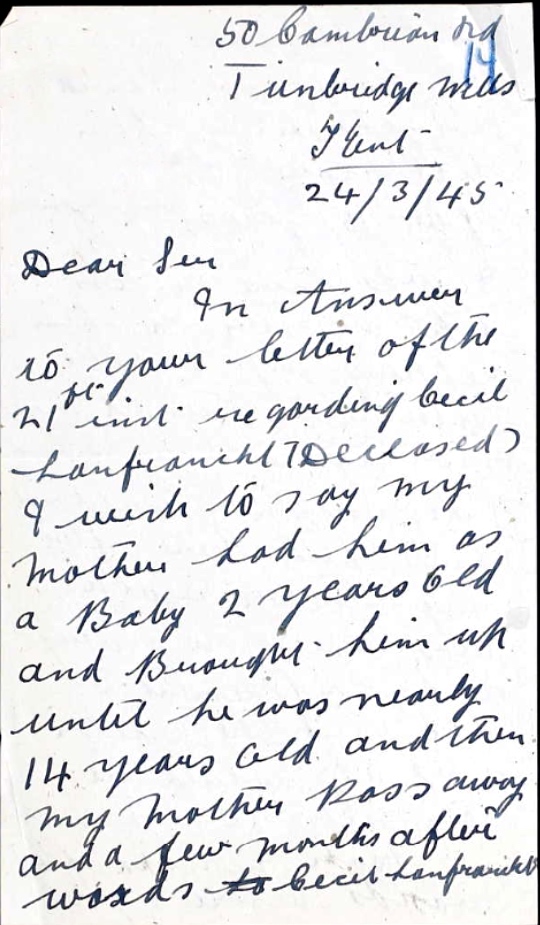 50 Cambrian Rd
14
Tunbridge Wells
Kent
24/3/45
Dear Sir
In Answer
to your letter of the
21st inst regarding Cecil
Lanfranchi (Deceased)
I wish to say my
Mother had him as
a Baby 2 years Old
and Brought him up
until he was nearly
14 years Old and then
my Mother Pass away
and a few months after
words to Cecil Lanfranchi